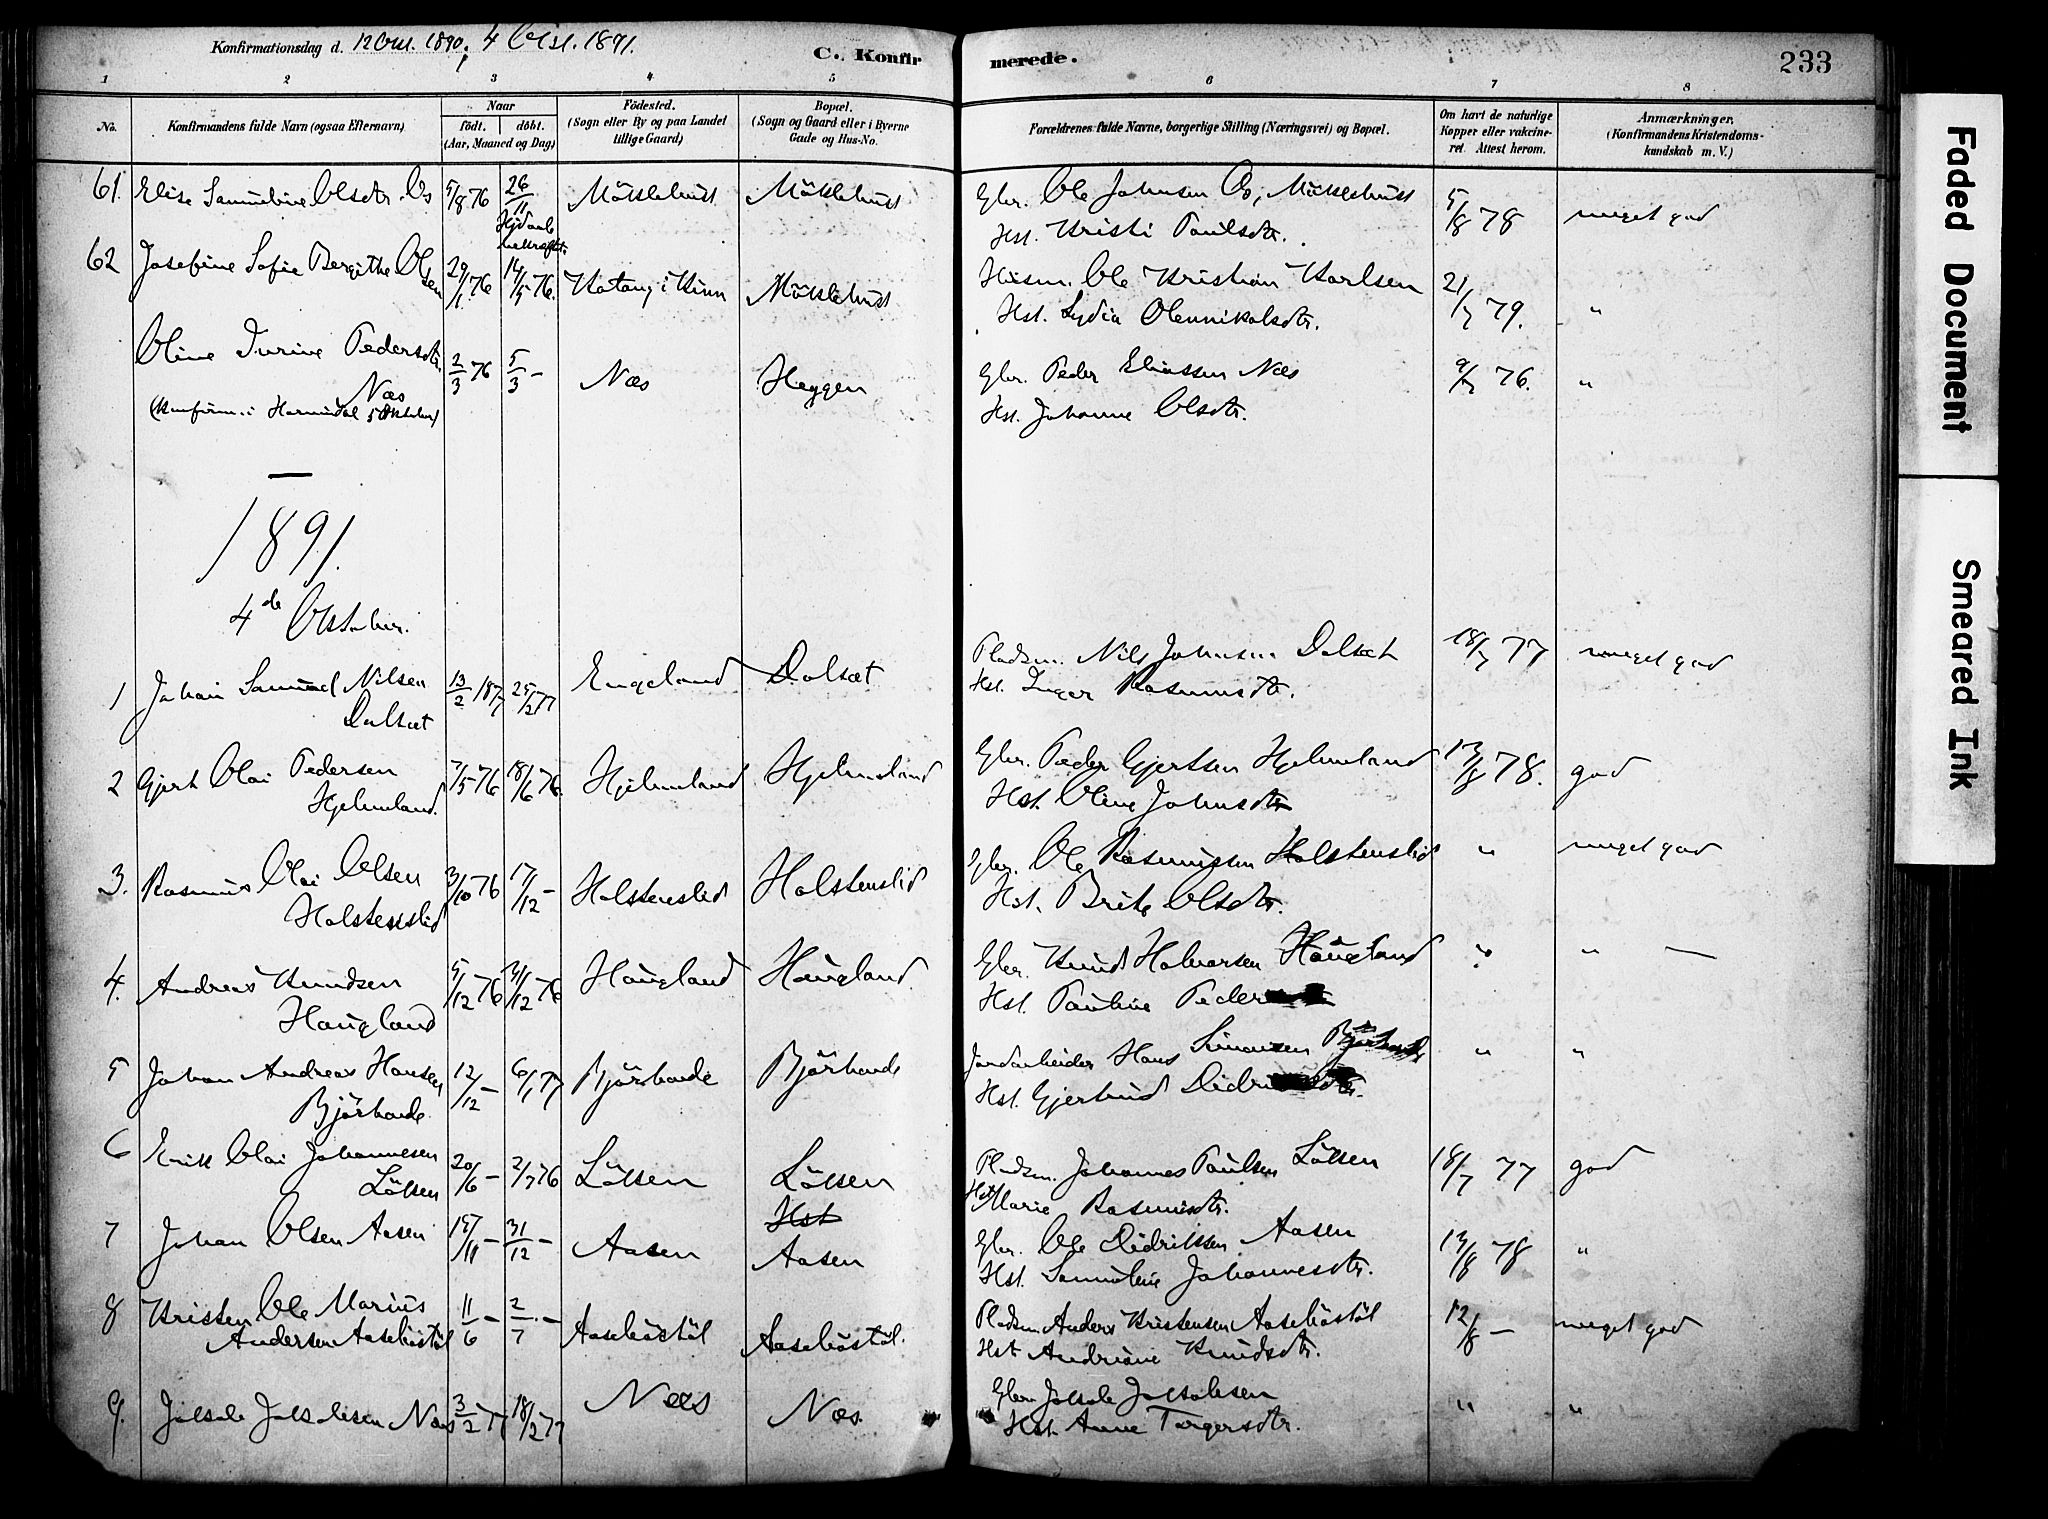 Konfirmationsdag d. 12 Okt. 1890, 4 Okt. 1891.
C. Konfirmerede.
233
1 2 3 4 5 6 7 8
No.
Konfirmandens fulde Navn (ogsaa Efternavn)
Naar
födt. döbt.
(Aar, Maaned og Dag)
Födested.
(Sogn eller By og paa Landet
tillige Gaard)
Bopæl.
(Sogn og Gaard eller i Byerne
Gade og Hus-No.
Forældrenes fulde Navne, borgerlige Stilling (Næringsvei) og Bopæl.
Om havt de naturlige
Kopper eller vakcine-
ret. Attest herom.
Anmærkninger.
(Konfirmandens Kristendoms-
kundskab m. V.)
61. Elise Samueline Olsdtr. Os 5/8 76 26/11 Möklebust Möklebust Gbr. Ole Johnsen Os, Möklebust 5/8 78 meget god
Hjdaab bekræft.
Hst. Kristi Paulsdtr.
62 Josefine Sofie Bergithe Olsen 29/1 76 14/5 76. i Kinn Möklebust Husm. Ole Kristian Karlsen 21/7 79. "
Hst. Lydia Olennikolsdtr.
Oline Jurine Pedersdtr. 2/3 76 5/3 - Næs Heggen Gbr. Peder Eliassen Næs 9/7 76. "
Næs
(Konfirm. i Hornindal 5 Oktober) Hst. Johanne Olsdtr.
1891.
4de Oktober.
1 Johan Samuel Nilsen 13/2 1877 25/2 77 Engeland Dalsæt Pladsm. Nils Johnsen Dalsæt 18/7 77 meget god
Dalsæt Hst. Inger Rasmusdtr.
2 Gjert Olai Pedersen 7/5 76 18/6 76. Hjelmeland Hjelmeland Gbr. Peder Gjertsen Hjelmeland 13/8 78. god
Hjelmeland. Hst. Oline Johnsdtr
3. Rasmus Olai Olsen 3/10 76 17/12 - Holstenslid Holstenslid Gbr. Ole Rasmussen Holstenslid " meget god
Holstenslid Hst. Brite Olsdtr.
4. Andreas Knudsen 5/12 76 31/12 76 Haugland Haugland. Gbr. Knud Halvorsen Haugland " " —
Haugland Hst. Pauline
5 Johan Andreas Hansen 12/12 - 6/1 77 Björhovde Björhovde Jordarbeider Hans Simonsen Björhovde " "
Björhovde Hst. Gjertrud
6 Erik Olai Johannesen 20/6 - 2/7 76 Löksen Löksen Pladsm. Johannes Paulsen Löksen 18/7 77 god
Löksen Hst. Marie Rasmusdtr.
Hst
7 Johan Olsen Aasen 19/11 - 31/12 - Aasen Aasen Gbr. Ole Didriksen Aasen 13/8 78 "
Hst. Samueline Johannesdtr.
8 Kristen Ole Marius 11/6 - 2/7 - Aaseböstöl Aaseböstöl. Pladsm. Anders Kristensen Aaseböstöl 12/8 - meget god
Andersen Aaseböstöl Hst. Andriane Knudsdtr.
9. Jakob Jakobsen Næs 3/2 77 18/2 77 Næs Næs Gbr. Jakob Jakobsen " "
Hst. Anne Torgersdtr.
Faded Document
Smeared Ink